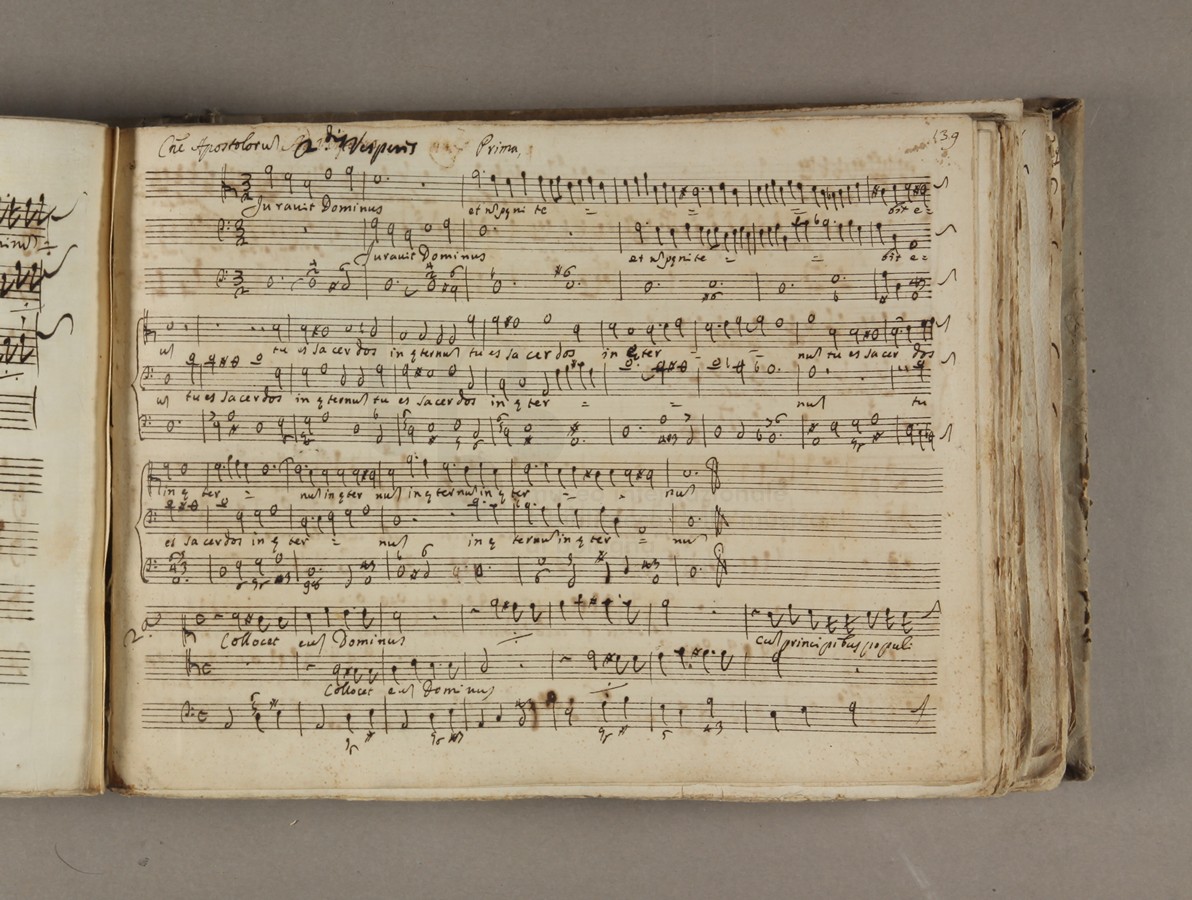 Cne Apostolorum 2dis Vesperis Prima,
139
Juravit Dominus et n pęnite = = = bit e=
Juravit Dominus et n pęnite = = bit e=
us tu es sacerdos in ęternus tu es sacerdos in ęter = = nus tu es sacer dos
us tu es sacerdos in ęternus tu es sacerdos in ęter = = nus tu
in ęter = nus in ęter nus in ęternus in ęter = = nus
es sacerdos in ęter = nus in ęternus in ęter = nus
2a
Collocet eus Dominus cus principibus populi
Collocet eus Dominus